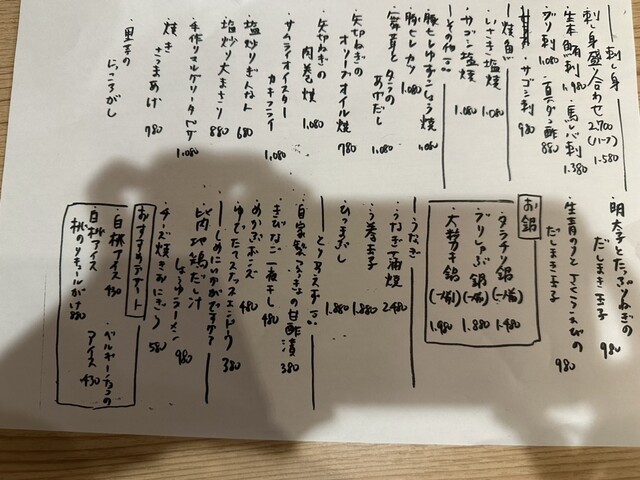 刺し身
・刺し身盛り合わせ 2.700
(ハーフ) 1.580
・生本鮪刺 1.980 ・馬レバ刺 1.380
・ブリ刺 1.080 ・真ダコ酢 880
・サゴシ刺 980
焼魚
・いさき塩焼 1.080
・サゴシ塩焼 1.080
その他一品
・豚ヒレゆずこしょう焼 1.080
・豚ヒレカツ 1.080
・舞茸とタラの
あげだし 1.080
・矢切ねぎの
オリーブオイル焼 780
・矢切ねぎの
肉巻焼 1.080
・サムライオイスター
カキフライ 1.080
・塩炒りぎんなん 680
・塩炒り大まさり 880
・手作りマルゲリータピザ 1.080
・焼きさつまあげ 780
・里芋の
にっころがし
・明太子とたっぷりねぎの
だしまき玉子 980
・生青のりとさくらえびの
だしまき玉子 980
お鍋
・タラチリ鍋 (一人前) 1.480
・ブリしゃぶ鍋 (一人前) 1.880
・大粒カキ鍋 (一人前) 1.980
うなぎ
・うなぎ蒲焼 2.480
・う巻玉子 1.880
・ひつまぶし 1.880
とりあえず一品
・自家製らっきょの甘酢漬 380
・きびなご一夜干し 480
・めかぶポンズ 480
・ゆでたてスナップエンドウ 380
しめにいかがですか?
・比内地鶏だし汁
しょうゆラーメン 980
・チーズ焼きおにぎり 580
おすすめデザート
・白桃アイス 430
・ベルギーチョコの
アイス 430
・白桃アイス
桃のリキュールがけ 880